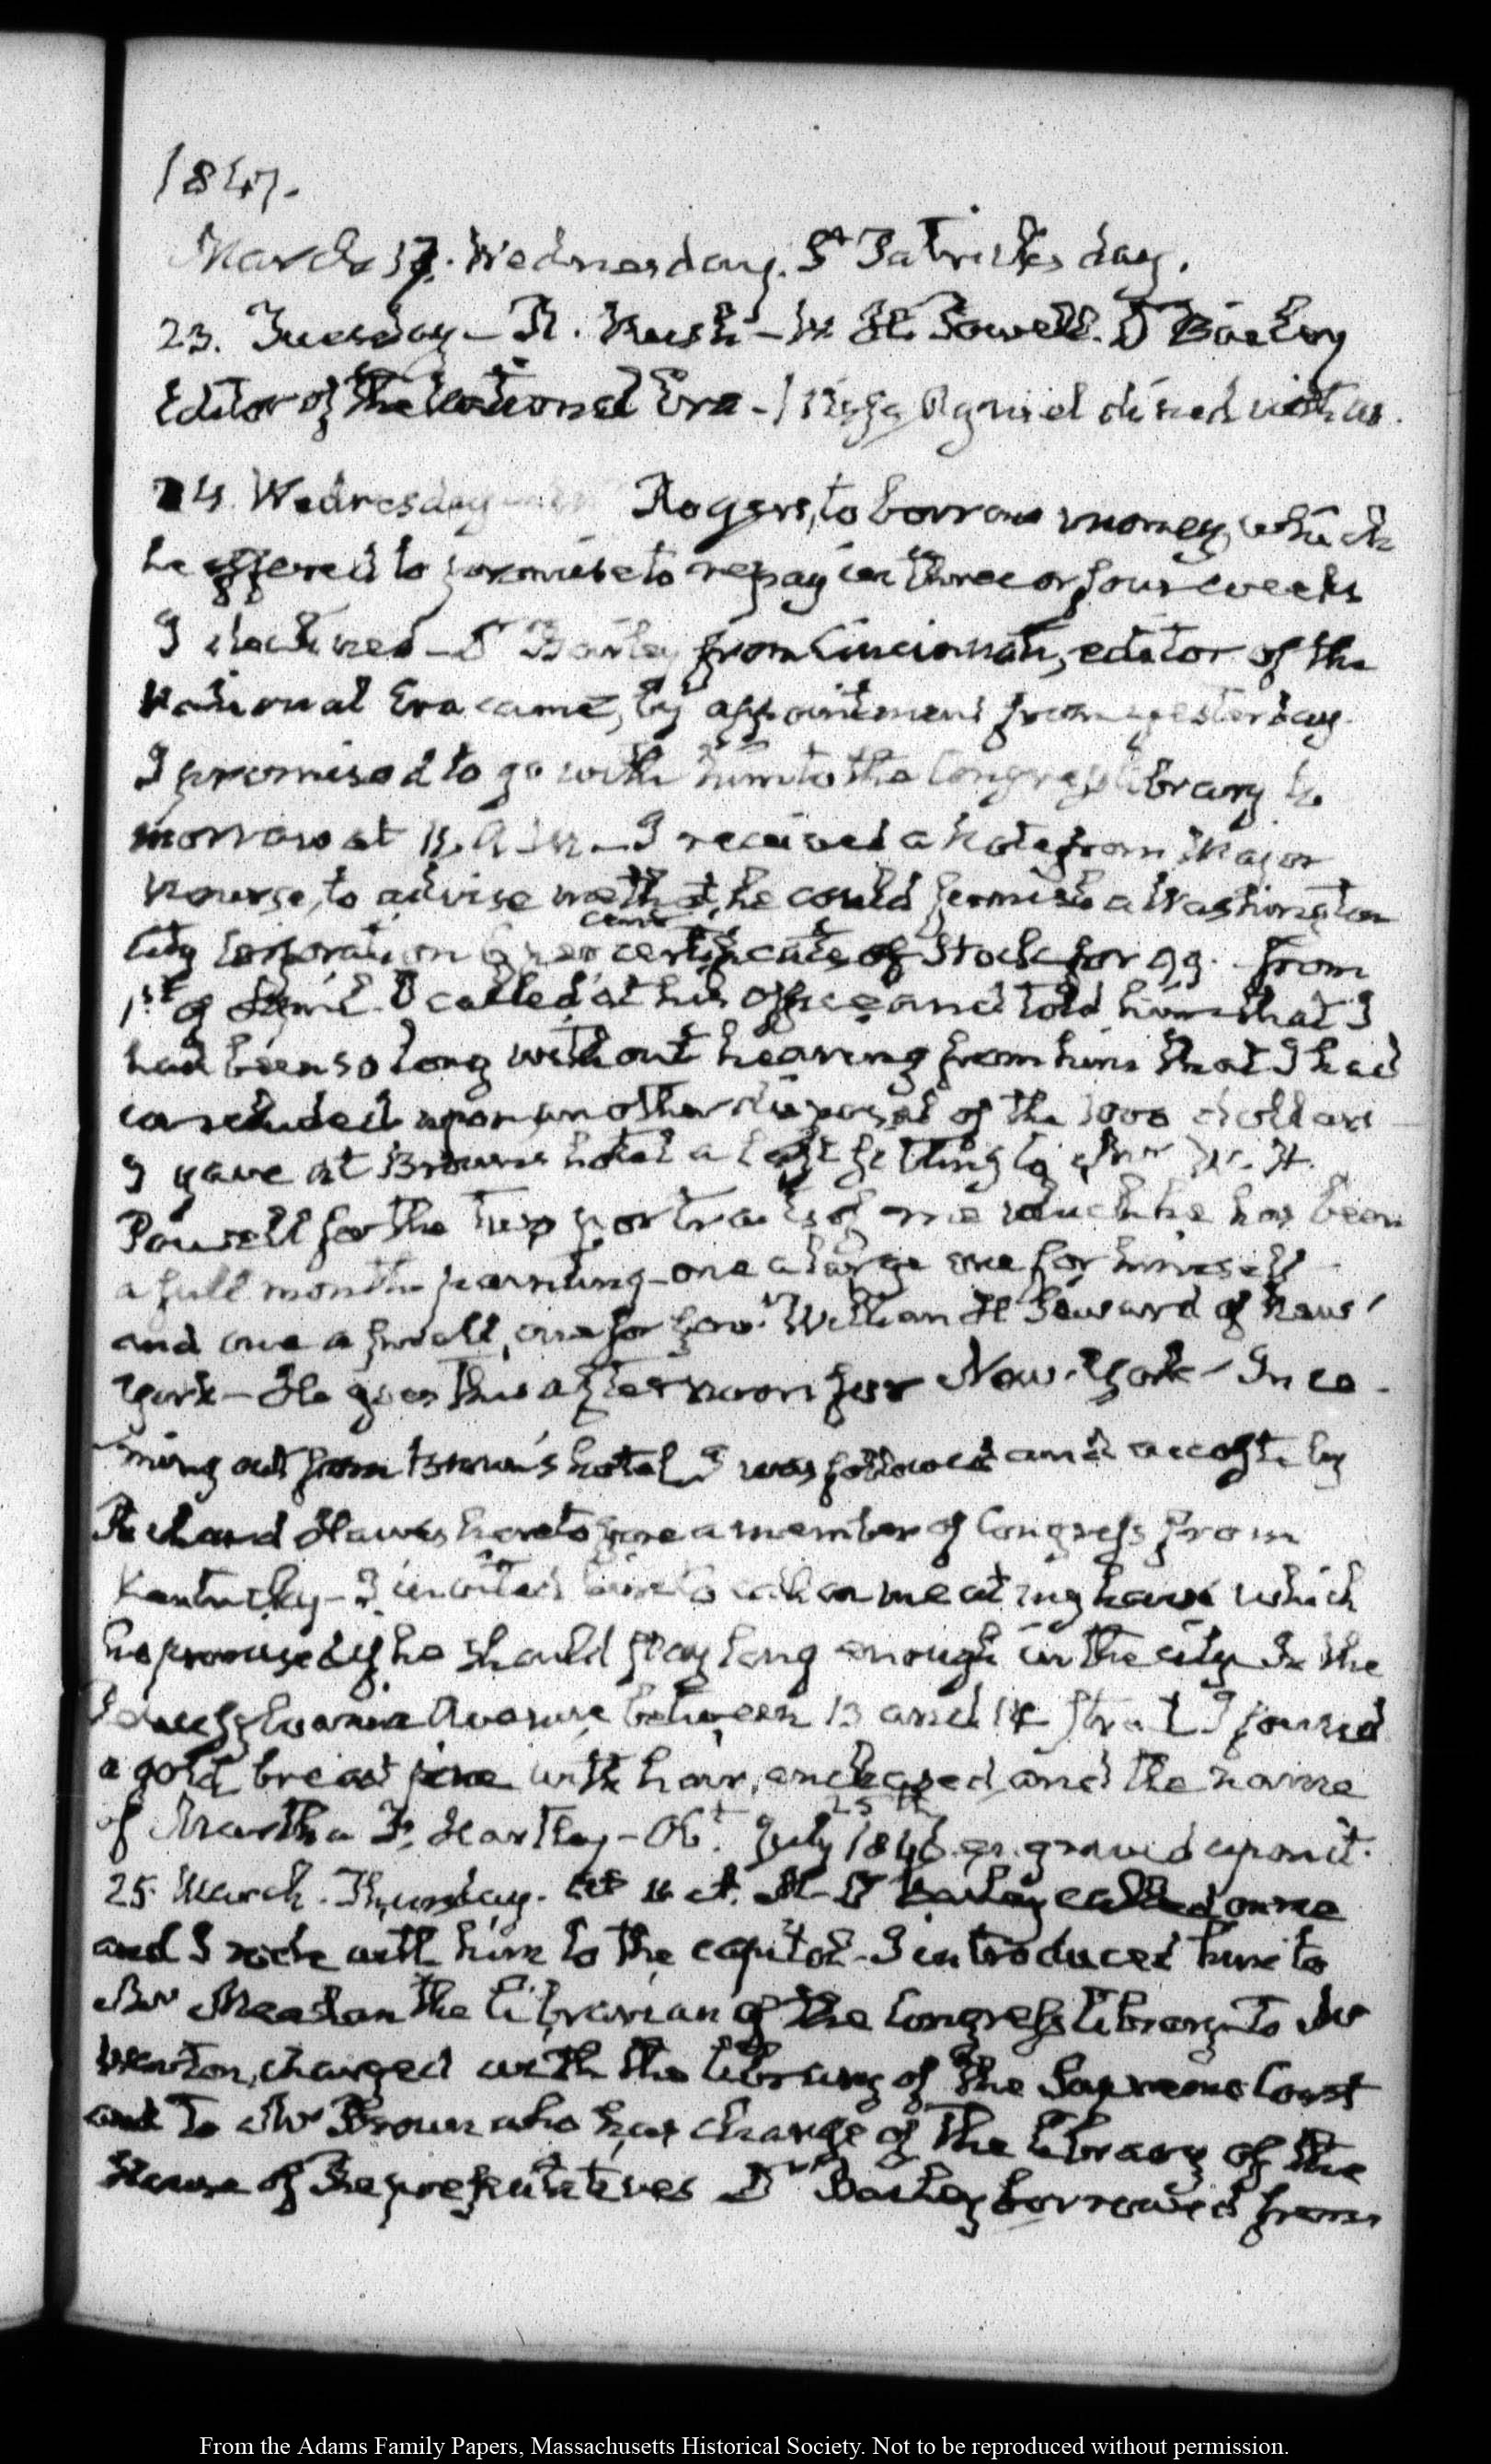 1847.
March 17. Wednesday. St Patricks day.
23. Tuesday — R. Rush — W. H. Powell. Dr Bailey
Editor of the National Era — dined with us.
24. Wednesday Rogers, to borrow money, which
he offered to promise to repay in three or four weeks
I declined — Dr Bailey from Cincinnati, editor of the
National Era came, by appointment from yesterday.
I promised to go with him to the Congress library to
morrow at — I received a Note from Major
Nourse, to advise me that he could furnish a Washington
cent
City Corporation 6 per certificate of Stock for 99. from
1st of April. I called at his Office and told him that I
had been so long without hearing from him that I had
concluded upon another disposal of the 1000 dollars —
I gave at Browns hotel a last sitting to Mr W. H.
Powell for the two portraits of me which he has been
a full month painting — one a large one for himself —
and one a small one for Govr. William H Seward of New
York — He goes this afternoon for New-York — In co-
ming out from Brown's hotel I was followed and accosted by
Richard Hawes heretofore a member of Congress from
Kentucky — I invited him to call on me at my house which
he promised if he should stay long enough in the city. In the
Pennsylvania Avenue between 13 and 14 street I found
a gold breast pin with hair, enchased and the name
25th
of Martha F. Hartley — Obt. July 1846 engraved upon it.
25. March. Thursday. At 11 A. M. Dr Bailey called on me
and I rode with him to the capitol — I introduced him to
Mr Meehan the librarian of the Congress library — To Mr
charged with the library of the Supreme Court
and to Mr Brown who has charge of the library of the
House of Representatives Dr Bailey borrowed from
From the Adams Family Papers, Massachusetts Historical Society. Not to be reproduced without permission.